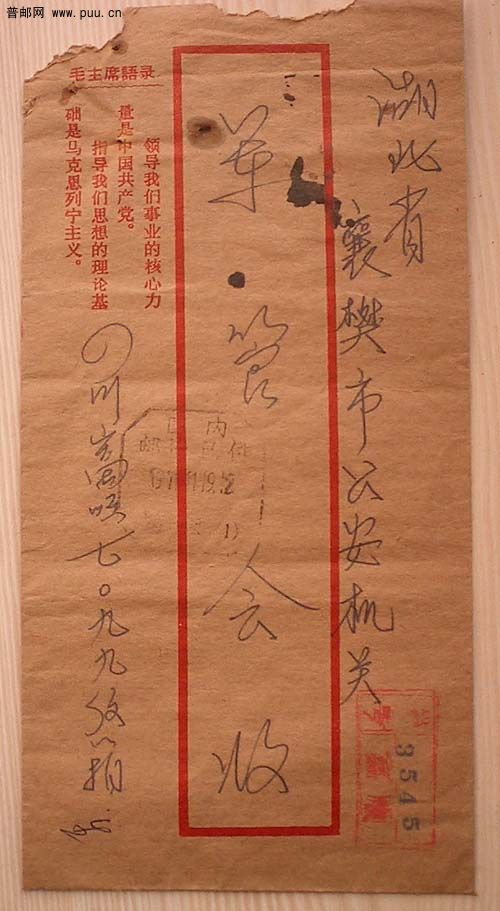 普邮网 www.puu.cn
湖北省
襄樊市公安机关
军管会 收
毛主席語录
领导我们事业的核心力
量是中国共产党。
指导我们思想的理论基
础是马克思列宁主义。
四川峨眉七〇九九信箱
国内
3545